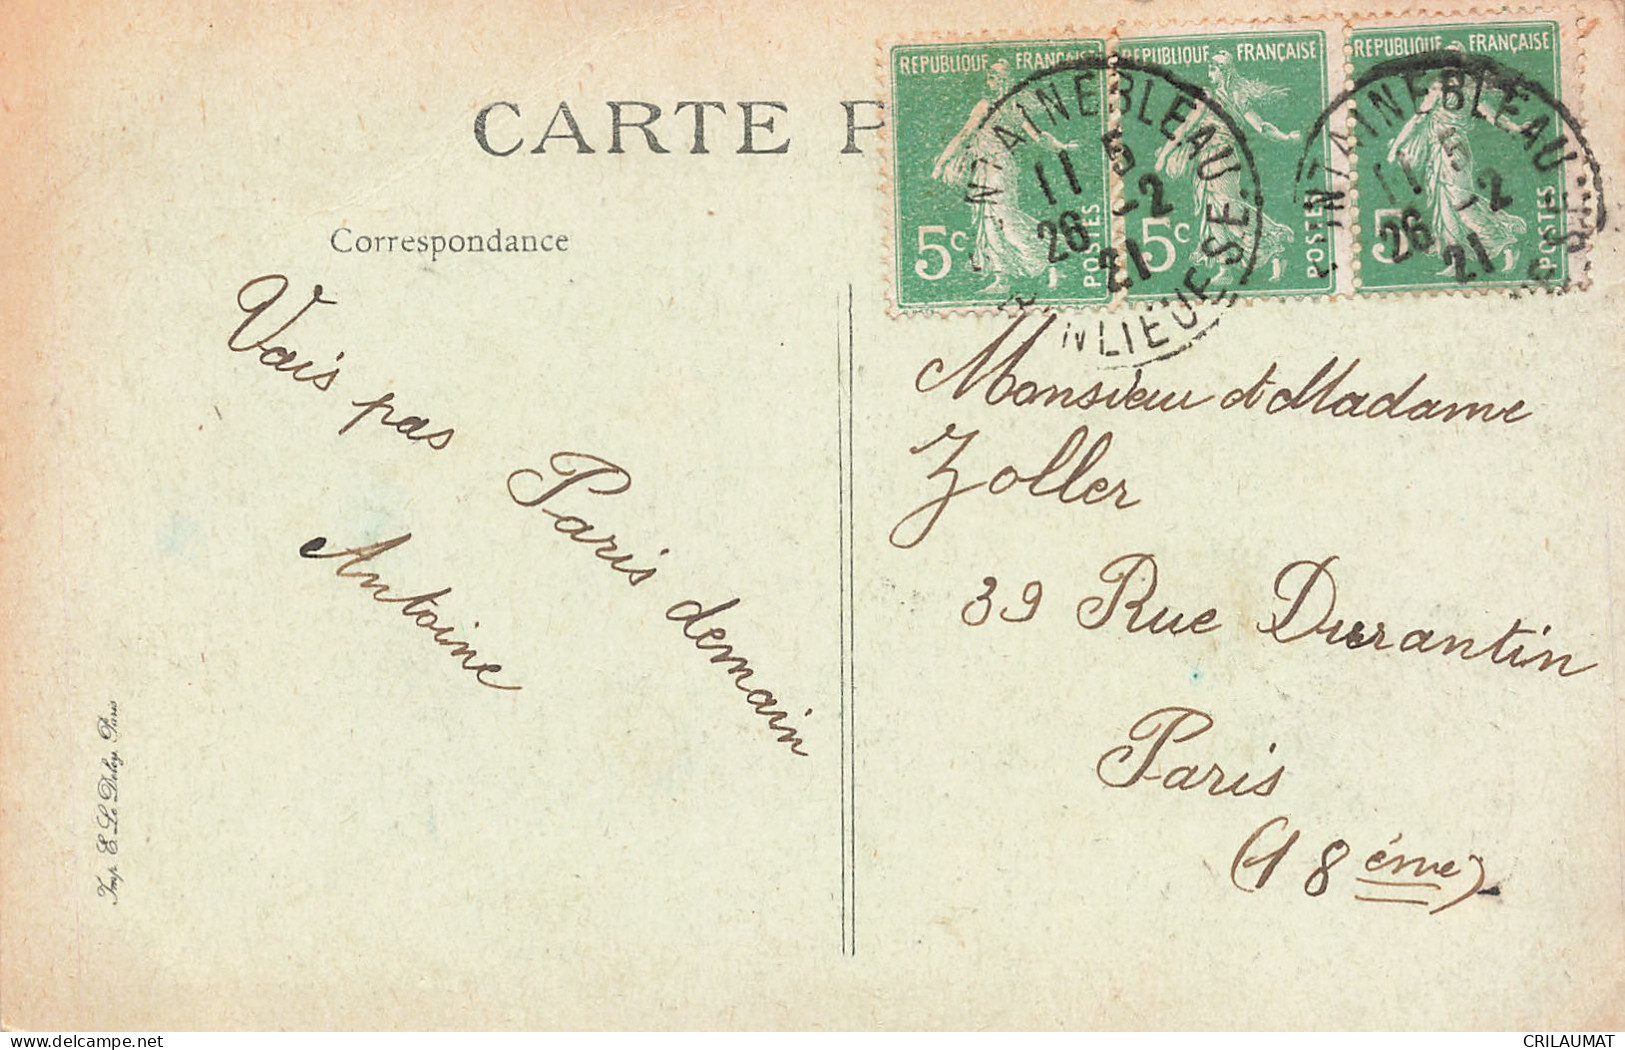 CARTE P
Correspondance
REPUBLIQUE FRANÇAISE
5c
POSTES
REPUBLIQUE FRANÇAISE
5c
POSTES
REPUBLIQUE FRANÇAISE
5
POSTES
NTAINEBLEAU
11 5
26 -2
21
SE
NTAINEBLEAU
11 5
26 2
21
Vais pas Paris demain
Antoine
Monsieur et Madame
Zoller
39 Rue Durantin
Paris
(18 ème)
Imp. E. Le Deley, Paris
delcampe.net
CRILAUMAT